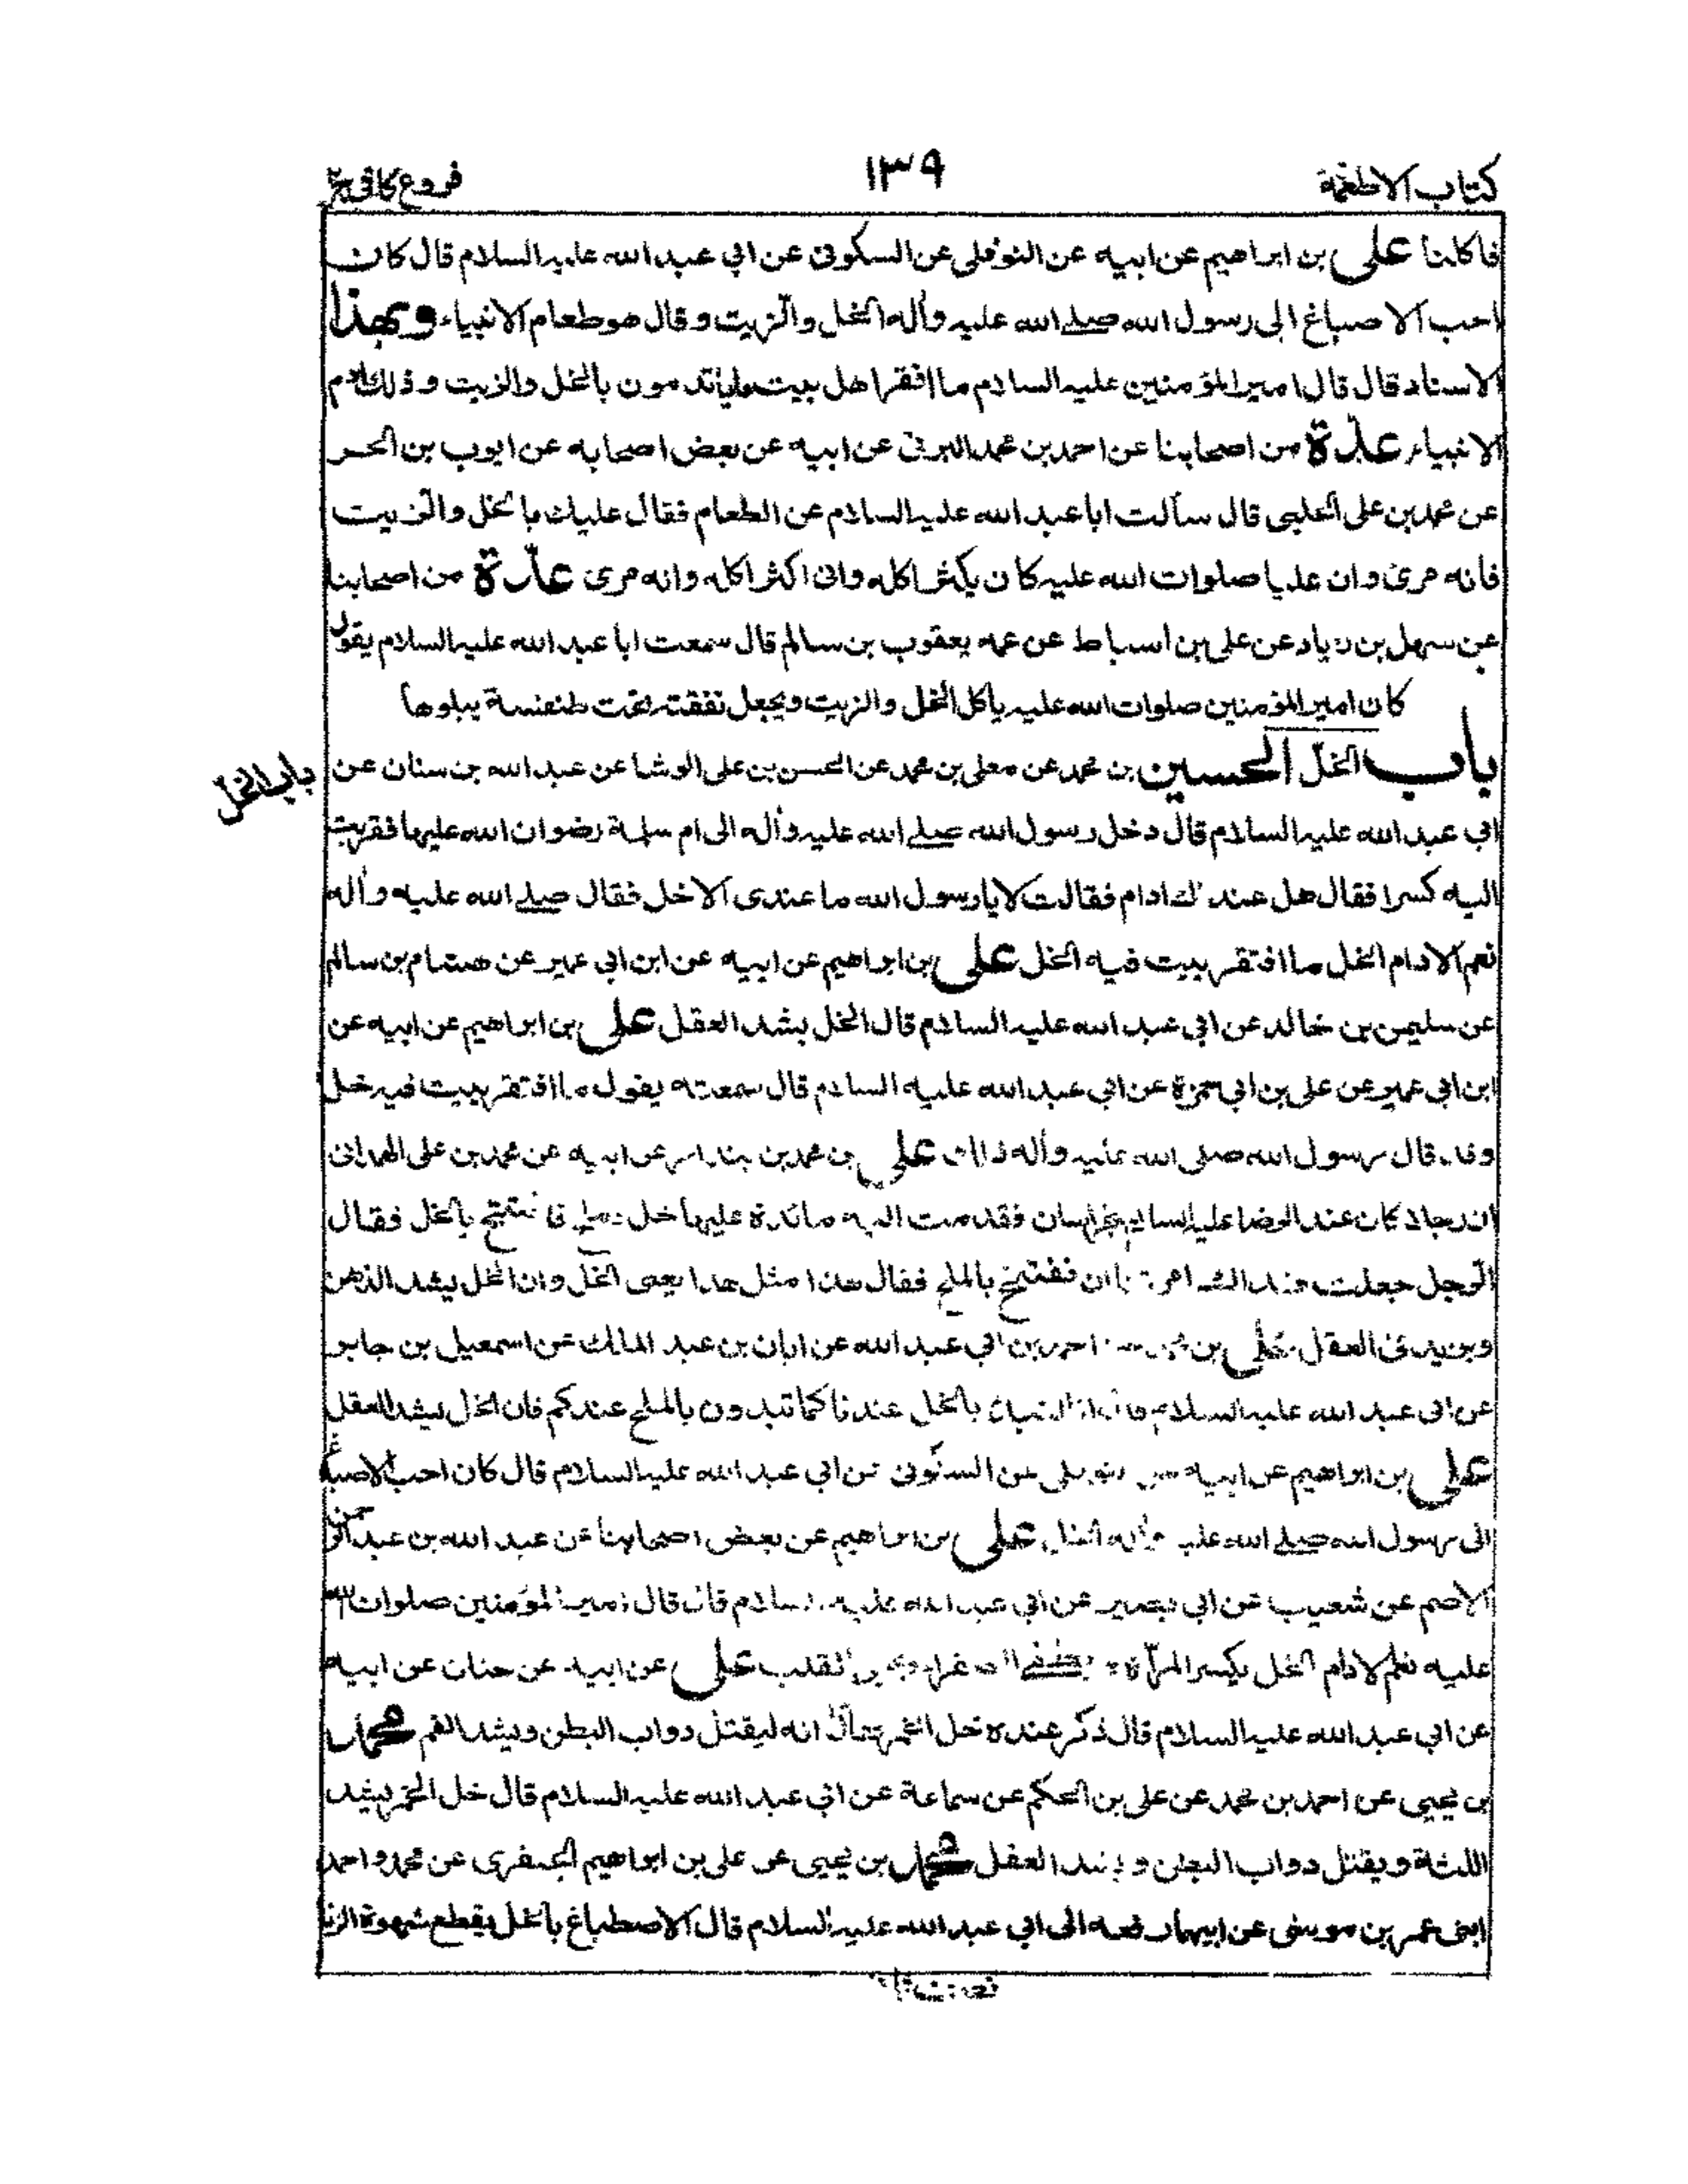 كتاب الاطعمة
١٣٩
فروع كافى ج٢
فاكلنا على بن ابراهيم عن ابيه عن النوفلى عن السكونى عن ابي عبد الله عليه السلام قال كان
احب الاصباغ الى رسول الله صلى الله عليه وأله الخل والزيت وقال هو طعام الانبياء وبهذا
الاسناد قال قال امير المؤمنين عليه السلام ما افقر اهل بيت يأتدمون بالخل والزيت وذلك ادم
الانبياء عدّة من اصحابنا عن احمد بن محمد البرقى عن ابيه عن بعض اصحابه عن ايوب بن الحر
عن محمد بن على الحلبى قال سألت ابا عبد الله عليه السلام عن الطعام فقال عليك بالخل والزيت
فانه مرئ وان عليا صلوات الله عليه كان يكثر اكله وانى اكثر اكله وانه مرئ عدّة من اصحابنا
عن سهل بن زياد عن على بن اسباط عن عمه يعقوب بن سالم قال سمعت ابا عبد الله عليه السلام يقول
كان امير المؤمنين صلوات الله عليه ياكل الخل والزيت ويجعل نفقته تحت طنفسة يبلوها
باب الخلّ الحسين بن محمد عن معلى بن محمد عن الحسن بن على الوشا عن عبد الله بن سنان عن
باب الخلّ
ابي عبد الله عليه السلام قال دخل رسول الله صلى الله عليه وأله الى ام سلمة رضوان الله عليها فقربت
اليه كسرا فقال هل عندك ادام فقالت لا يا رسول الله ما عندى الا خل فقال صلى الله عليه وأله
نعم الادام الخل ما افتقر بيت فيه الخل على بن ابراهيم عن ابيه عن ابن ابي عمير عن هشام بن سالم
عن سليمن بن خالد عن ابي عبد الله عليه السلام قال الخل يشد العقل على بن ابراهيم عن ابيه عن
ابن ابي عمير عن على بن ابي حمزة عن ابي عبد الله عليه السلام قال سمعته يقول ما افتقر بيت فيه خل
وقد قال رسول الله صلى الله عليه وأله ذلك على بن محمد بن بندار عن ابيه عن محمد بن على الهمدانى
ان رجلا كان عند الرضا عليه السلام بخراسان فقدمت اليه مائدة عليها خل وملح فافتتح بالخل فقال
الرجل جعلت فداك امرتنا ان نفتتح بالملح فقال هذا مثل هذا يعنى الخل وان الخل يشد الذهن
ويزيد فى العقل على بن محمد عن احمد بن ابي عبد الله عن ابان بن عبد الملك عن اسمعيل بن جابر
عن ابي عبد الله عليه السلام قال انا لنبدأ بالخل عندنا كما تبدون بالملح عندكم فان الخل ليشد العقل
على بن ابراهيم عن ابيه عن النوفلى عن السكونى عن ابي عبد الله عليه السلام قال كان احب الاصباغ
الى رسول الله صلى الله عليه وأله الخل على بن ابراهيم عن بعض اصحابنا عن عبد الله بن عبد الرحمن
الاصم عن شعيب عن ابي بصير عن ابي عبد الله عليه السلام قال قال امير المؤمنين صلوات الله
عليه نعم الادام الخل يكسر المرّة ويطفى الصفراء ويحيى القلب على عن ابيه عن حنان عن ابيه
عن ابي عبد الله عليه السلام قال ذكر عنده خل الخمر فقال انه ليقتل دواب البطن ويشد الفم محمد
بن يحيى عن احمد بن محمد عن على بن الحكم عن سماعة عن ابي عبد الله عليه السلام قال خل الخمر يشد
اللثة ويقتل دواب البطن ويشد العقل محمد بن يحيى عن على بن ابراهيم الجعفرى عن محمد واحمد
ابنى عمر بن موسى عن ابيهما رفعه الى ابي عبد الله عليه السلام قال الاصطباغ بالخل يقطع شهوة الزنا